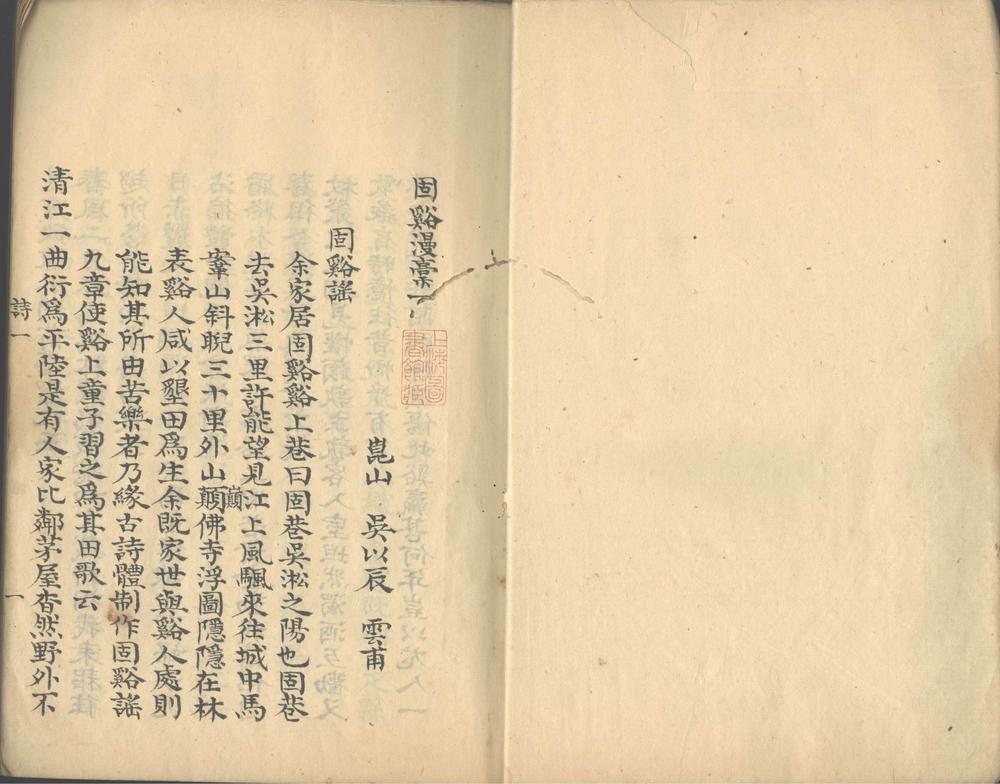 固谿漫稾一
上海圖書館藏
崑山 吳以辰 雲甫
固谿謠
余家居固谿谿上巷曰固巷吳淞之陽也固巷
去吳淞三里許能望見江上風颿來往城中馬
鞌山斜睨三十里外山顛佛寺浮圖隱隱在林
巔
表谿人咸以墾田爲生余既家世與谿人處則
能知其所由苦樂者乃緣古詩體制作固谿謠
九章使谿上童子習之爲其田歌云
清江一曲衍爲平陸是有人家比鄰茅屋杳然野外不
詩一
一